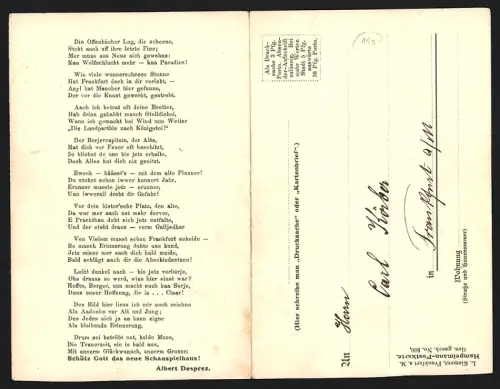 Die Offenbächer Log, die scheene,
Steht aach uff ihre letzte Pien;
Mer muss ans Neue sich gewehne:
Kaa Wolfschlucht mehr — kaa Paradies!
Wie viele wunnerscheene Stunne
Hat Frankfort doch in dir verlebt, —
Anyl hat Mancher hier gefunne,
Der vor die Kunst geweckt, gestrebt.
Aach ich betrat oft deine Bretter,
Hab deine gehabbt manch Stelldichei,
Wann ich gemacht bei Wind un Wetter
„Die Landparthie nach Königstei!"
Der Borjercapitain, der Alte,
Hat dich vor Feuer oft beschitzt,
So bliebst de uns bis jetz erhalte,
Doch Alles hat dich nix genitzt.
Eweck — häässt's — mit dem alte Plunner!
Du stehst schon iwwer hunnert Jahr,
Erunner musste jetz — erunner,
Uns iwwerall droht die Gefahr!
Vor dein hinter'sche Platz, den alte,
Da war mer aach net mehr dervor,
E Prachtbau duht sich jetz entfalte,
Und der steht draus — vorm Galljedhor
Von Vielem musst schon Frankfort scheide —
So manch Erinnerung dahte uns kund,
Jetz müsse mer aach dich bald meide,
Bald schlägt aach dir die Abschiedsstunn!
Leibt dunkel aach — bis jetz vorborje,
Obs draus so werd, wies hier einst war?
Hoffe, Borger, uns macht euch kaa Sorje,
Denn unser Hoffnung, die is . . . Claar!
Des Bild hier lless ich mir noch zeichne
Als Andenke vor Alt und Jung;
Des Jedes sich ja zu kann eigne
Als bleibende Erinnerung.
Drum sei betrübt net, heide Muse,
Die Trauerzeit, sie is bald aus,
Mit unsern Glückwunsch, unsern Grusse:
Schütz Gott das neue Schauspielhaus!
Albert Desprez.
Als Druck-
sache 3 Pfg.
Porto. Absen-
der-Aufschrift
zulässig. Bei
mehr Worten
Stadt 5 Pfg.
auswärts
10 Pfg. Porto.
(Hier schreibe man „Drucksache" oder „Kartenbrief".)
An Herrn
Carl Körber
in Frankfurt a/M
Wohnung
(Straße und Hausnummer)
L. Klement, Frankfurt a. M.
Hampelmann-Postkarte.
Ges. gesch. No. 100.